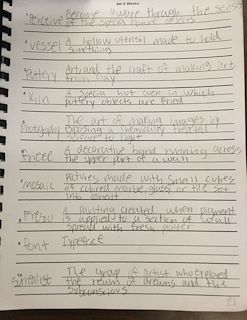 6th 9 Weeks
Become aware through the senses
Perceive of the special nature objects
vessel A hollow utensil made to hold
something
Pottery Art and the craft of making art
from clay
Kiln A special hot oven in which
pottery objects are fired
The art of making images by
Photography exposing a chemically treated
surface to light
Frieze A decorative band running across
the upper part of a wall
mosaic Pictures made with small cubes
of colored marble, glass, or tile set
into cement
Fresco A painting created when pigment
is applied to a section of wall
spread with fresh plaster
font Typeface
surrealist The group of artist who explored
the realm of dreams and the
subconscious
21